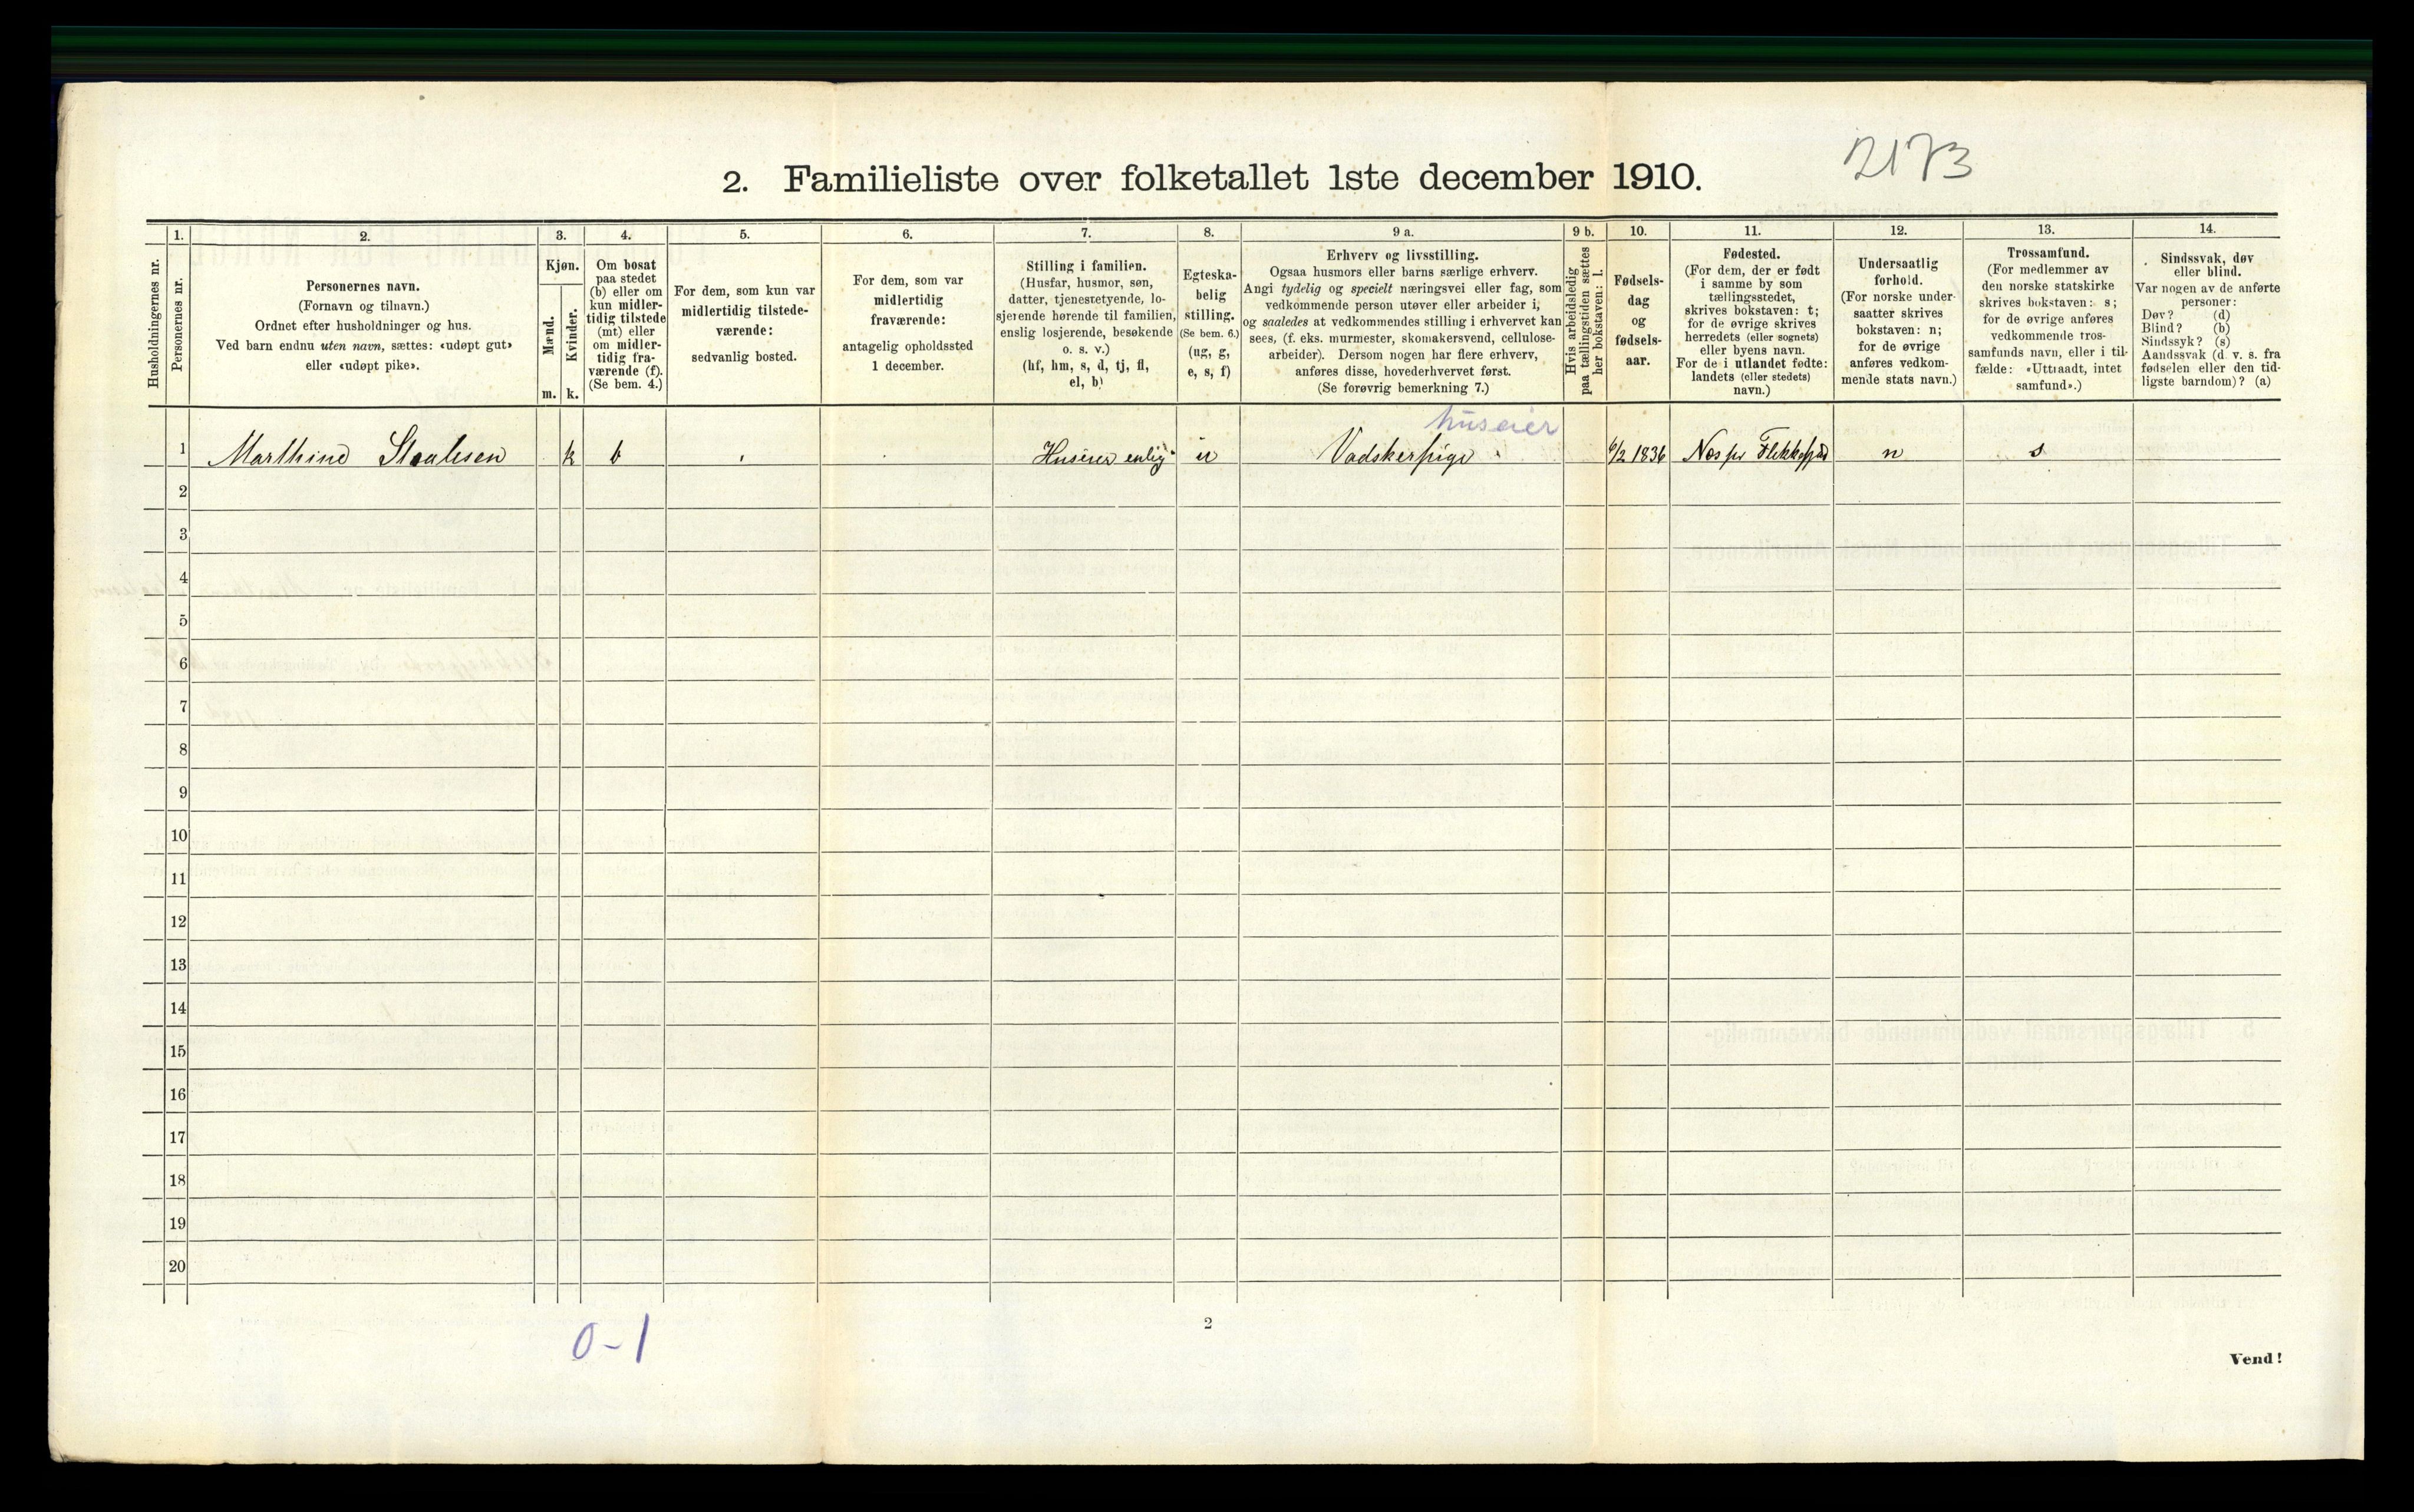 2173
2. Familieliste over folketallet 1ste december 1910.
Husholdningernes nr.
1.
Personernes nr.
2.
Personernes navn.
(Fornavn og tilnavn.)
Ordnet efter husholdninger og hus.
Ved barn endnu uten navn, sættes: «udøpt gut»
eller «udøpt pike».
3.
Kjøn.
Mænd.
Kvinder.
m. k.
4.
Om bosat
paa stedet
(b) eller om
kun midler-
tidig tilstede
(mt) eller
om midler-
tidig fra-
værende (f).
(Se bem. 4.)
5.
For dem, som kun var
midlertidig tilstede-
værende:
sedvanlig bosted.
6.
For dem, som var
midlertidig
fraværende:
antagelig opholdssted
1 december.
7.
Stilling i familien.
(Husfar, husmor, søn,
datter, tjenestetyende, lo-
sjerende hørende til familien,
enslig losjerende, besøkende
o. s. v.)
(hf, hm, s, d, tj, fl,
el, b)
8.
Egteska-
belig
stilling.
(Se bem. 6.)
(ug, g,
e, s, f)
9 a.
Erhverv og livsstilling.
Ogsaa husmors eller barns særlige erhverv.
Angi tydelig og specielt næringsvei eller fag, som
vedkommende person utøver eller arbeider i,
og saaledes at vedkommendes stilling i erhvervet kan
sees, (f. eks. murmester, skomakersvend, cellulose-
arbeider). Dersom nogen har flere erhverv,
anføres disse, hovederhvervet først.
(Se forøvrig bemerkning 7.)
9 b.
Hvis arbeidsledig
paa tællingstiden sættes
her bokstaven: l.
10.
Fødsels-
dag
og
fødsels-
aar.
11.
Fødested.
(For dem, der er født
i samme by som
tællingsstedet,
skrives bokstaven: t;
for de øvrige skrives
herredets (eller sognets)
eller byens navn.
For de i utlandet fødte:
landets (eller stedets)
navn.)
12.
Undersaatlig
forhold.
(For norske under-
saatter skrives
bokstaven: n;
for de øvrige
anføres vedkom-
mende stats navn.)
13.
Trossamfund.
(For medlemmer av
den norske statskirke
skrives bokstaven: s;
for de øvrige anføres
vedkommende tros-
samfunds navn, eller i til-
fælde: «Uttraadt, intet
samfund».)
14.
Sindssvak, døv
eller blind.
Var nogen av de anførte
personer:
Døv? (d)
Blind? (b)
Sindssyk? (s)
Aandssvak (d. v. s. fra
fødselen eller den tid-
ligste barndom)? (a)
huseier
1 Marthine k b enlig u Vadskerpige 6/2 1836 Nes pr Flekkefjord n s
2
3
4
5
6
7
8
9
10
11
12
13
14
15
16
17
18
19
20
0-1
2
Vend!